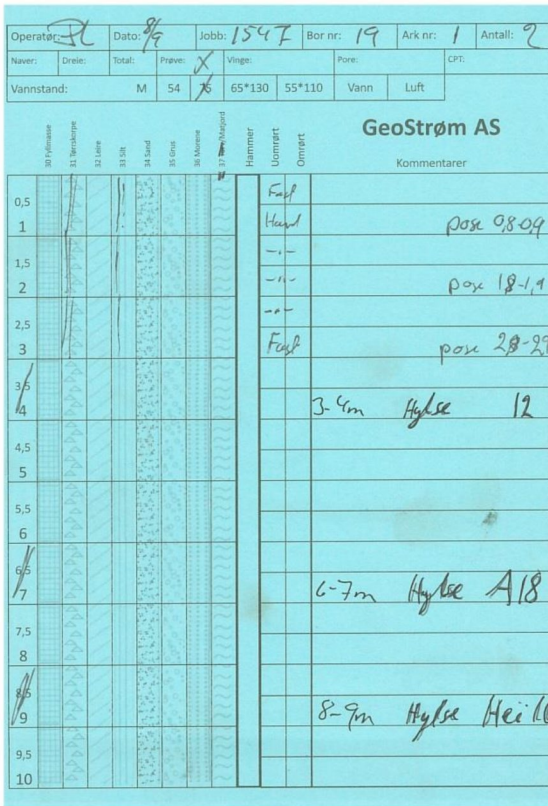 Operatør: PL Dato: 8/9 Jobb: 1547 I Bor nr: 19 Ark nr: 1 Antall: 2
Naver: Dreie: Total: Prøve: X Vinge: Pore: CPT:
Vannstand: M 54 75 65*130 55*110 Vann Luft
GeoStrøm AS
30 Fyllmasse 31 Tørrskorpe 32 Leire 33 Silt 34 Sand 35 Grus 36 Morene 37 /Matjord Hammer Uomrørt Omrørt Kommentarer
0,5 Fast
1 Hard pose 0,8-0,9
1,5 -"-
2 -"- pose 1,8-1,9
2,5 -"-
3 Fast pose 2,8-2,9
3,5
4 3-4m Hylse 12
4,5
5
5,5
6
6,5
7 6-7m Hylse A18
7,5
8
8,5
9 8-9m Hylse
9,5
10